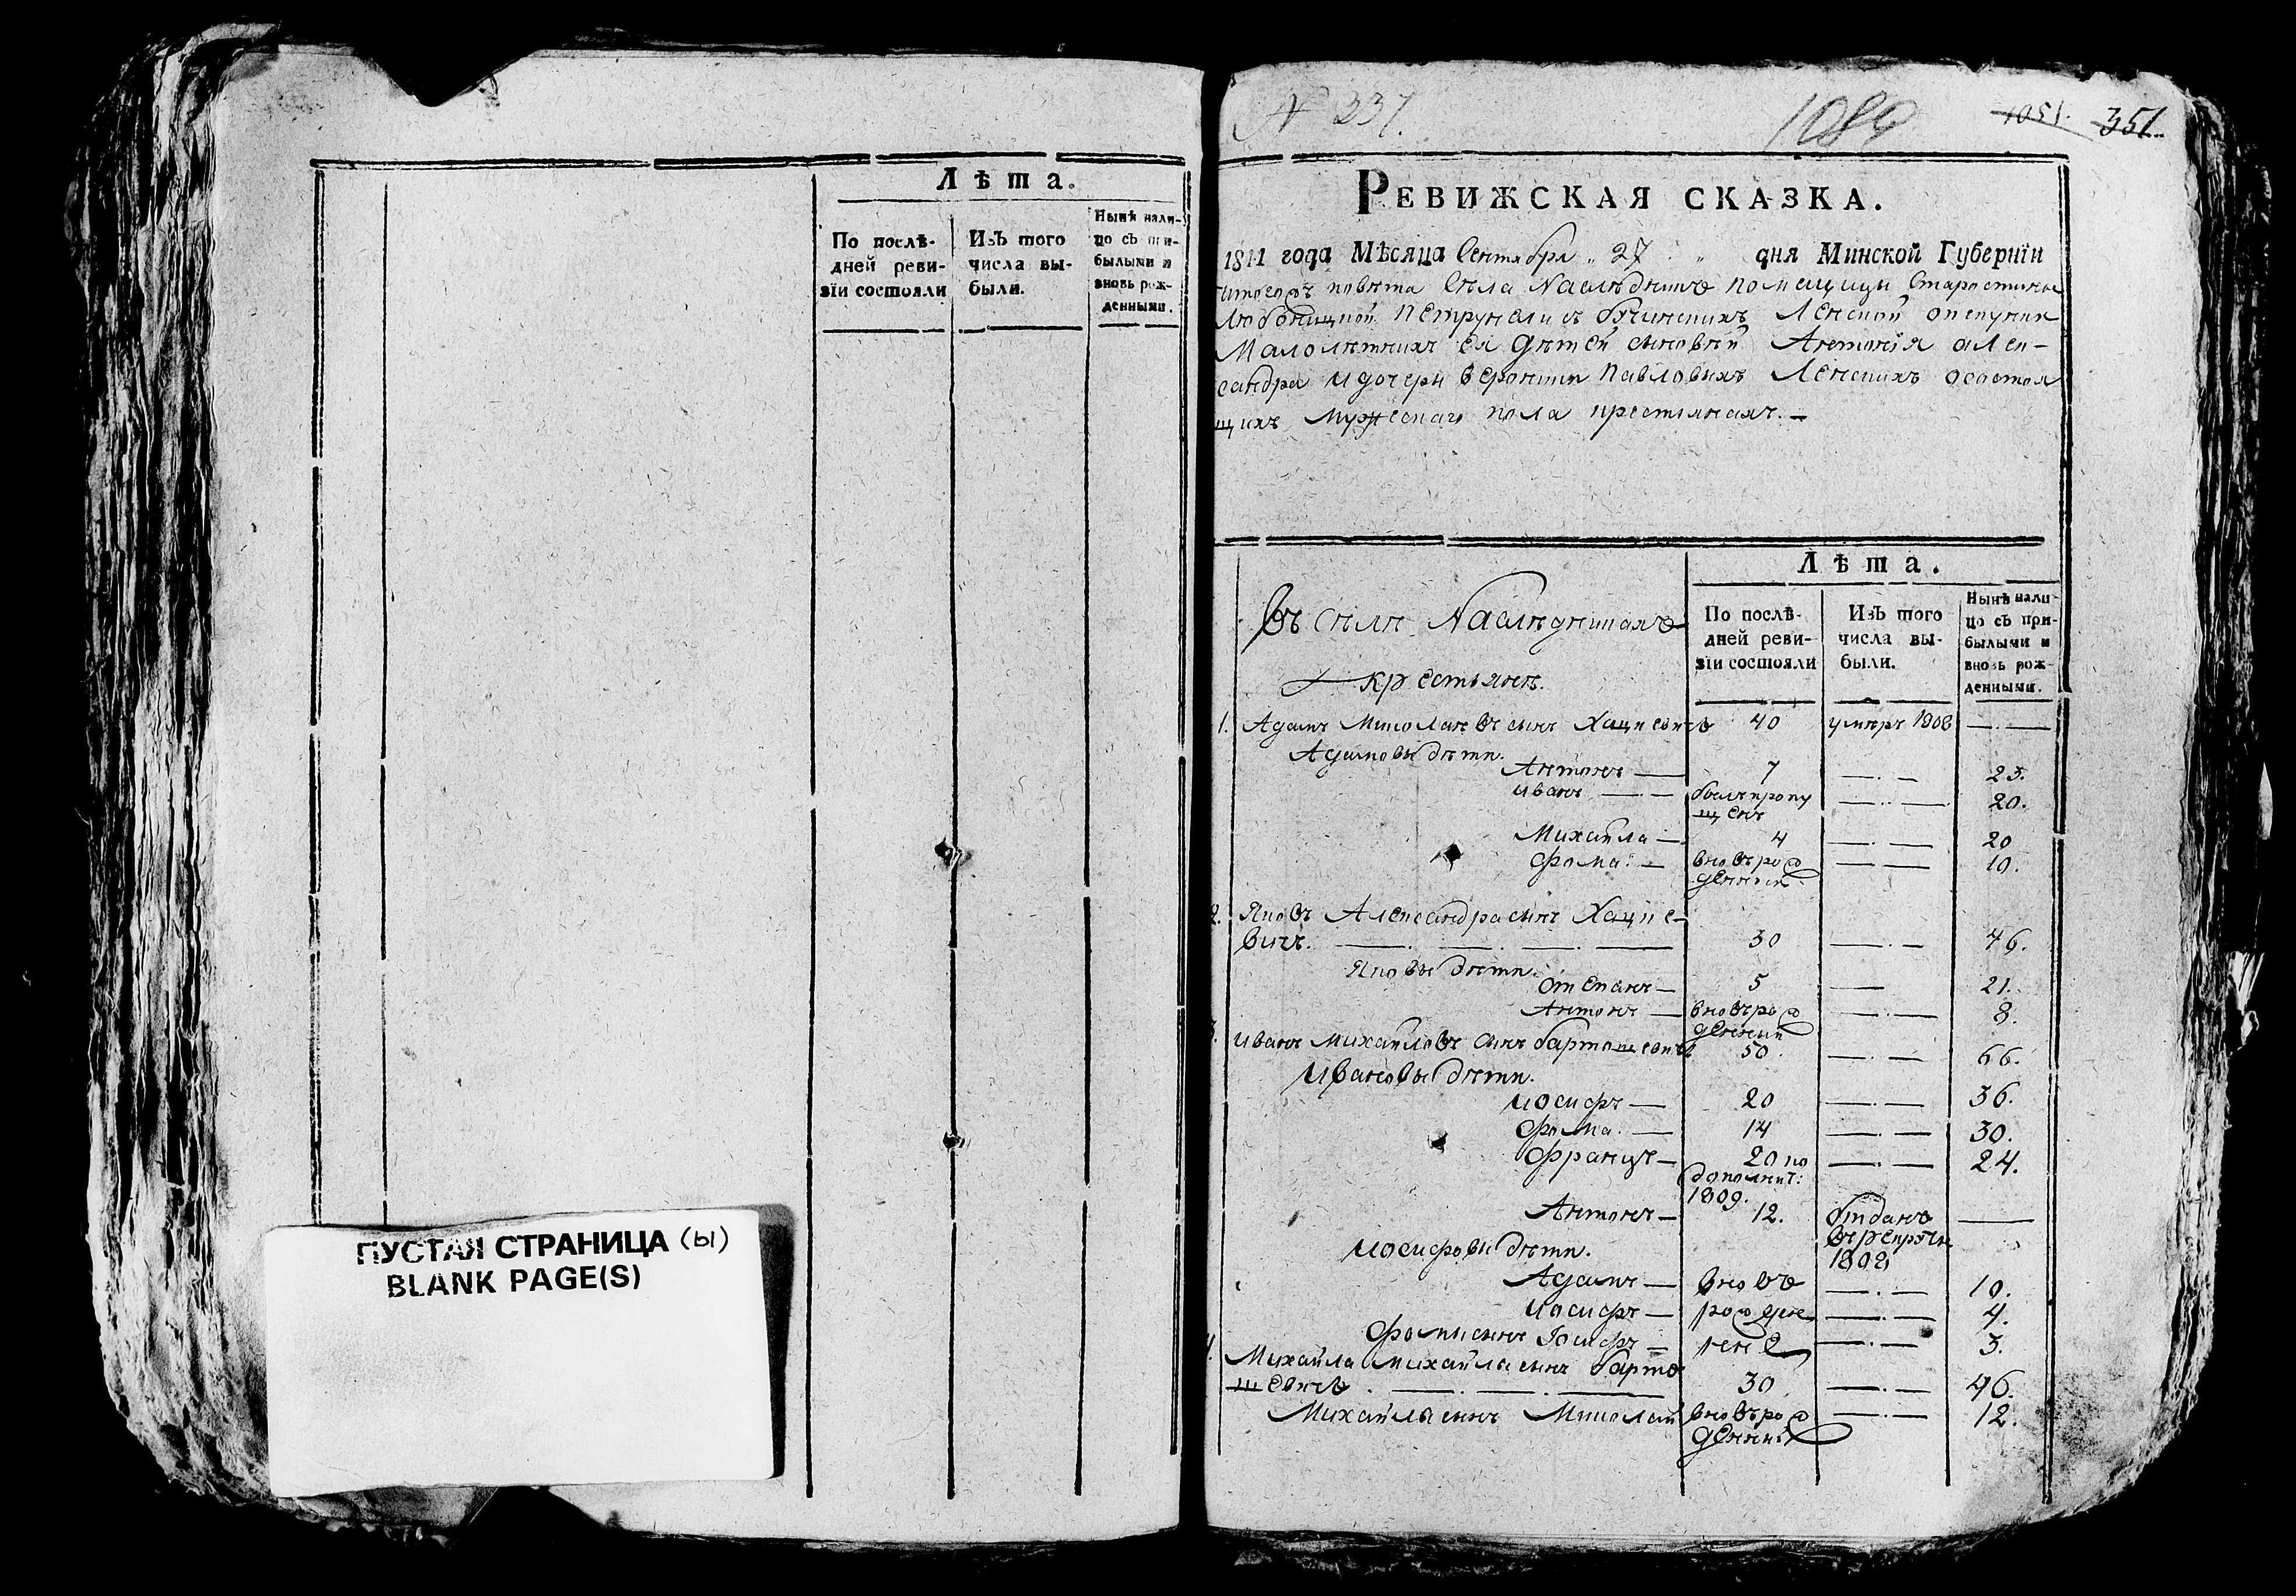 Лѣта.
По послѣ-
дней реви-
зіи состояли
Изъ того
числа вы-
были.
Нынѣ нали-
цо съ при-
былыми и
вновь рож-
денными.
ПУСТАЯ СТРАНИЦА (ы)
BLANK PAGE(S)
N 337.
1089
1051.
351
РЕВИЖСКАЯ СКАЗКА.
1811 года Мѣсяца Сентября 27 дня Минской Губерніи
повѣта села помещицы Старостины
Ленской опекунки
Малолѣтнихъ ея дѣтей сыновей Антонія Алек-
сандра и дочери Вероники Павловыхъ Ленскихъ осостоя
щихъ Мужескаго пола крестьянахъ.
Въ селѣ
крестьянъ.
Лѣта.
По послѣ-
дней реви-
зіи состояли
Изъ того
числа вы-
были.
Нынѣ нали-
цо съ при-
былыми и
вновь рож-
денными.
1. Адамъ Миколаевъ сынъ Хацкевичъ 40 умеръ 1808
Адамовы дѣти.
Антонъ 7 23.
Иванъ былъ пропу 20.
щенъ
Михайла 4 20
Фома вновь рож 10.
денный
2. Яковъ Александра сынъ Хацке-
вичъ. 30 46.
Яковы дѣти.
Степанъ 5 21.
Антонъ вновь рож 8.
денный
3. Иванъ Михайловъ сынъ Бартошевичъ 50 66.
Ивановы дѣти.
Иосифъ 20 36.
Фома 14 30.
Францъ 20 по 24.
дополнит:
1809.
Антонъ 12. отданъ
въ рекруты
1808
Иосифовы дѣти.
Адамъ вновь 10.
Иосифъ рожде 4.
Фомы сынъ Іосифъ 3.
4. Михайла Михайлы сынъ Барто
шевичъ. 30 46.
Михайлы сынъ Миколай вновь рож 12.
денный